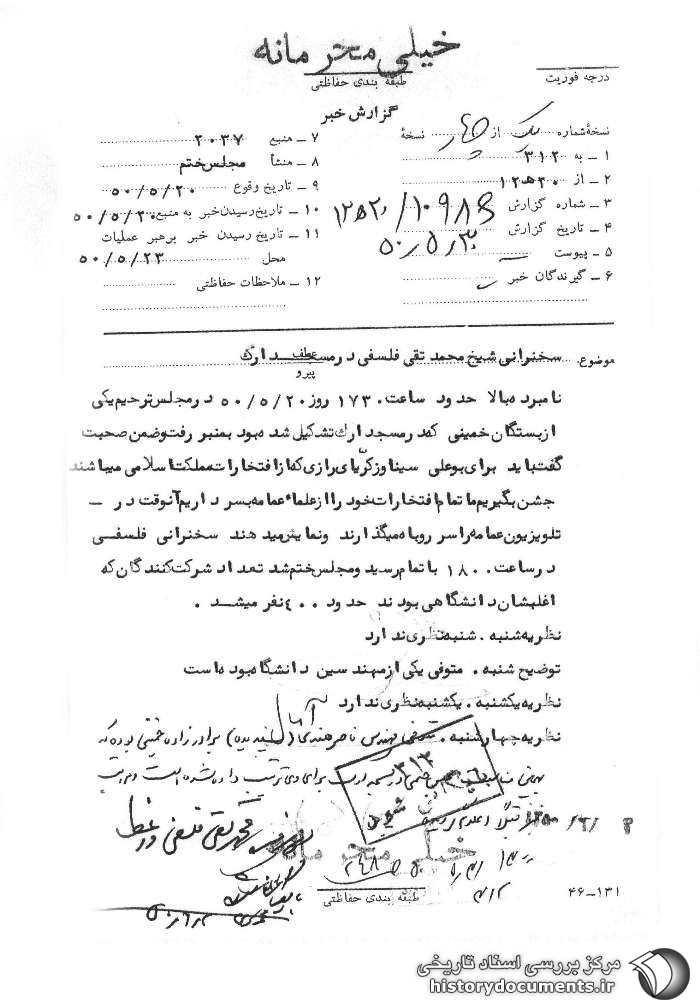 خیلی محرمانه
طبقه بندی حفاظتی
درجه فوریت
گزارش خبر
نسخهٔ شماره یک از چهار نسخهٔ
۱ ــ به ۳۱۲
۲ ــ از ۱۲ه۲۰
۳ ــ شماره گزارش ۱۲ه۲۰/۱۰۹۸۶
۴ ــ تاریخ گزارش ۵۰/۵/۳۰
۵ ــ پیوست
۶ ــ گیرندگان خبر
۷ ــ منبع ۲۰۳۷
۸ ــ منشأ مجلس ختم
۹ ــ تاریخ وقوع ۵۰/۵/۲۰
۱۰ ــ تاریخ رسیدن خبر به منبع ۵۰/۵/۲۰
۱۱ ــ تاریخ رسیدن خبر برهبر عملیات
محل ۵۰/۵/۲۳
۱۲ ــ ملاحظات حفاظتی
موضوع سخنرانی شیخ محمد تقی فلسفی در مسجد ارک
عطف
پیرو
نامبرده بالا حدود ساعت ۱۷۳۰ روز ۵۰/۵/۲۰ در مجلس ترحیم یکی
از بستگان خمینی که در مسجد ارک تشکیل شده بود بمنبر رفت و ضمن صحبت
گفت باید برای بوعلی سینا و زکریای رازی که از افتخارات مملکت اسلامی میباشند
جشن بگیریم ما تمام افتخارات خود را از علماء عمامه بسر داریم آنوقت در ــ
تلویزیون عمامه را سر روباه میگذارند و نمایش میدهند سخنرانی فلسفی
در ساعت ۱۸۰۰ با تمام رسید و مجلس ختم شد تعداد شرکت کنندگان که
اغلبشان دانشگاهی بودند حدود ۴۰۰ نفر میشد .
نظریه شنبه . شنبه نظری ندارد
توضیح شنبه . متوفی یکی از مهندسین دانشگاه بوده است
نظریه یکشنبه . یکشنبه نظری ندارد
نظریه چهارشنبه . متوفی مهندس ناصر هندی (پسندیده) برادرزاده خمینی بوده که
مجلس ختمی در مسجد ارک برای وی ترتیب داده شده است
۳۱۳
قبلاً اعلام
محمد تقی فلسفی
خیلی محرمانه
طبقه بندی حفاظتی
۴۶-۱۳۱
مرکز بررسی اسناد تاریخی
historydocuments.ir